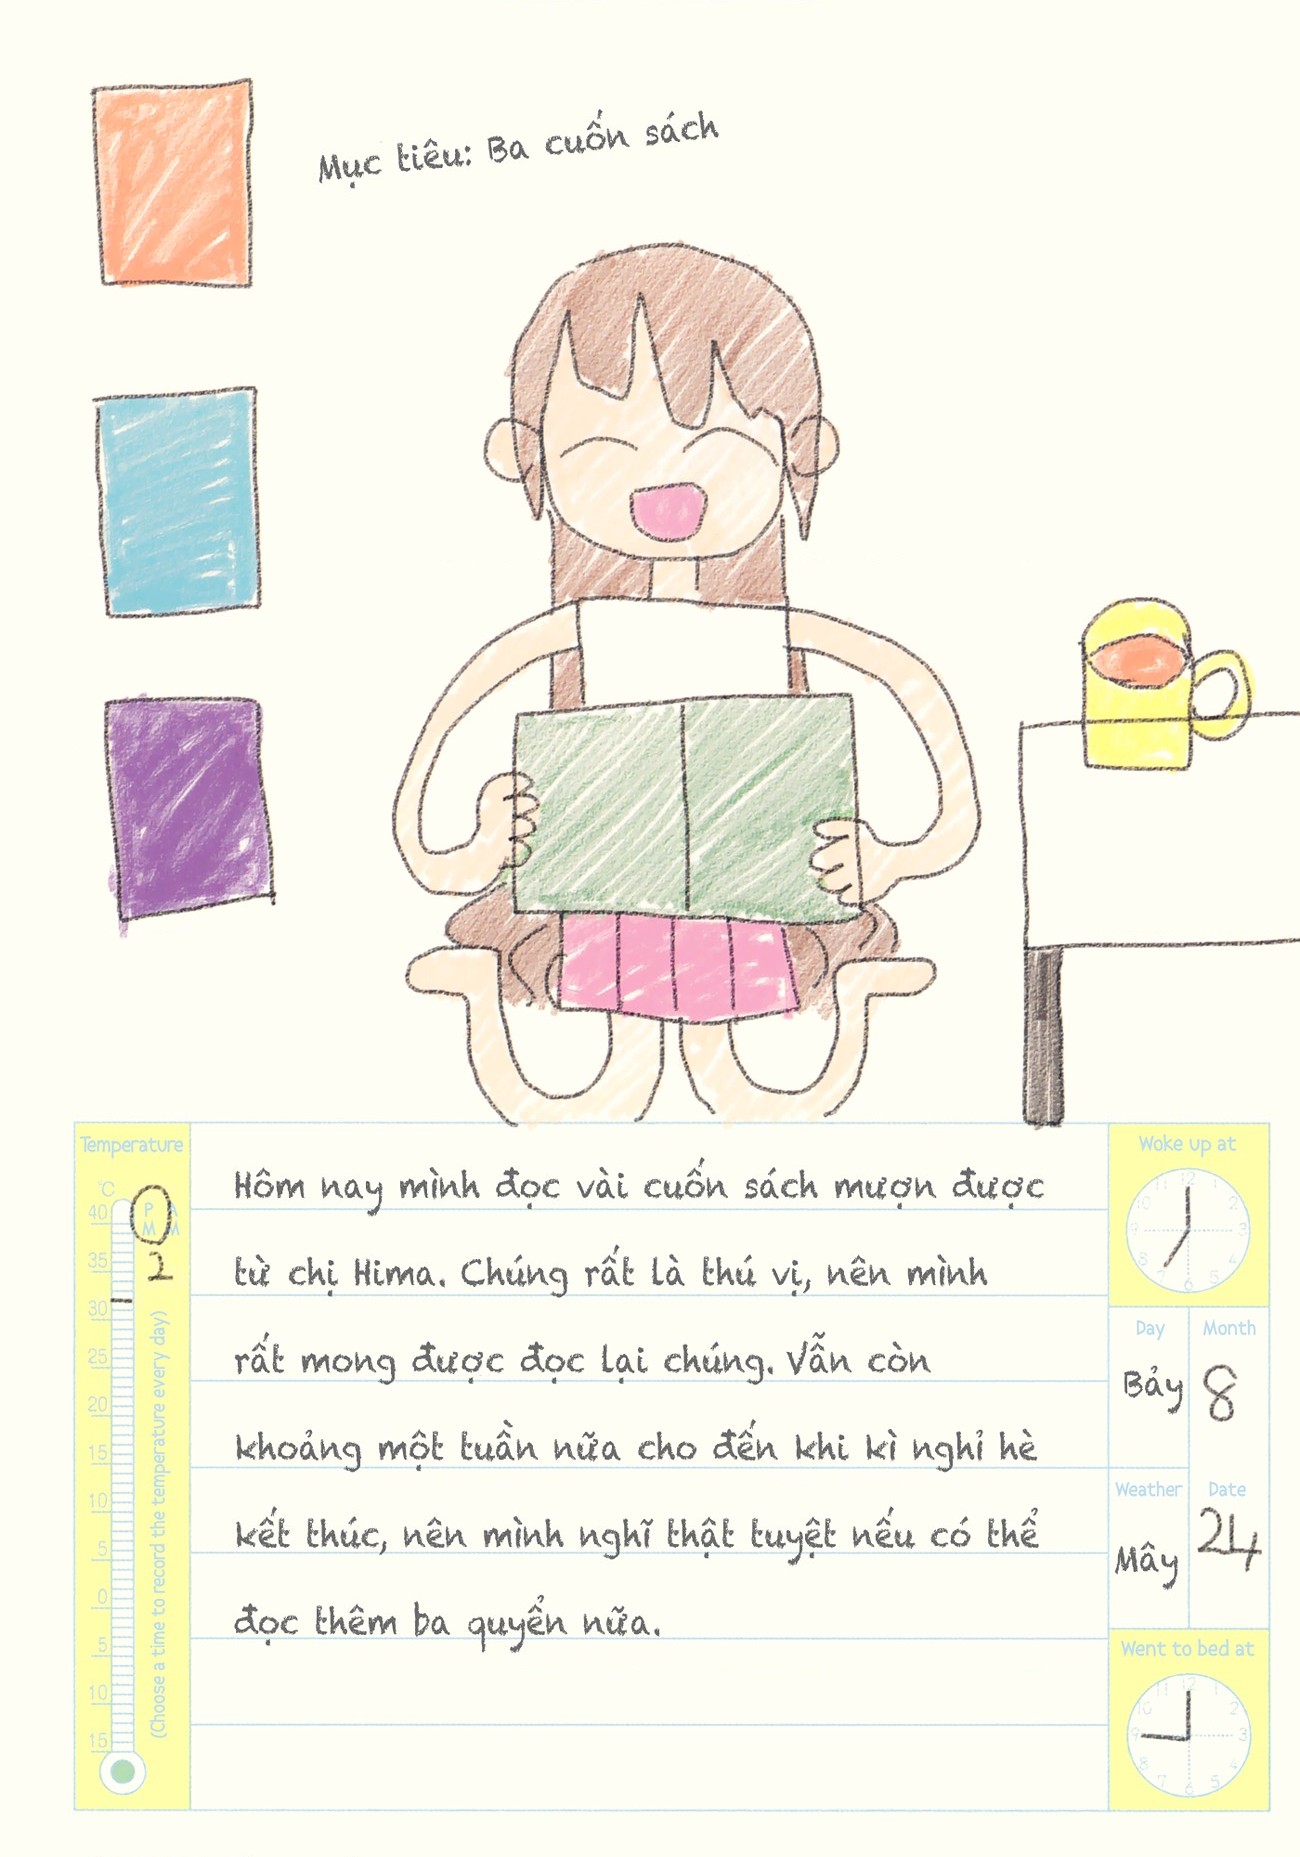 Mục tiêu: Ba cuốn sách
Temperature
°C
40
35
30
25
20
15
10
5
0
5
10
15
P M
A M
2
(Choose a time to record the temperature every day)
Hôm nay mình đọc vài cuốn sách mượn được
từ chị Hima. Chúng rất là thú vị, nên mình
rất mong được đọc lại chúng. Vẫn còn
khoảng một tuần nữa cho đến khi kì nghỉ hè
kết thúc, nên mình nghĩ thật tuyệt nếu có thể
đọc thêm ba quyển nữa.
Woke up at
12
1
2
3
4
5
6
7
8
9
10
11
Day
Month
Bảy
8
Weather
Date
Mây
24
Went to bed at
12
1
2
3
4
5
6
7
8
9
10
11